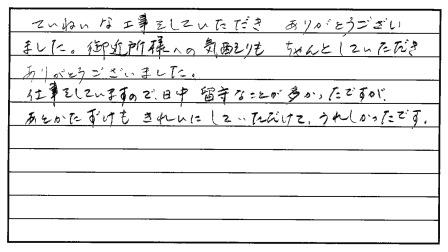 ていねいな工事をしていただき ありがとうござい
ました。御近所様への気配りも ちゃんとしていただき
ありがとうございました。
仕事をしていますので、日中 留守なことが多かったですが、
あとかたずけも きれいにしていただけて、うれしかったです。